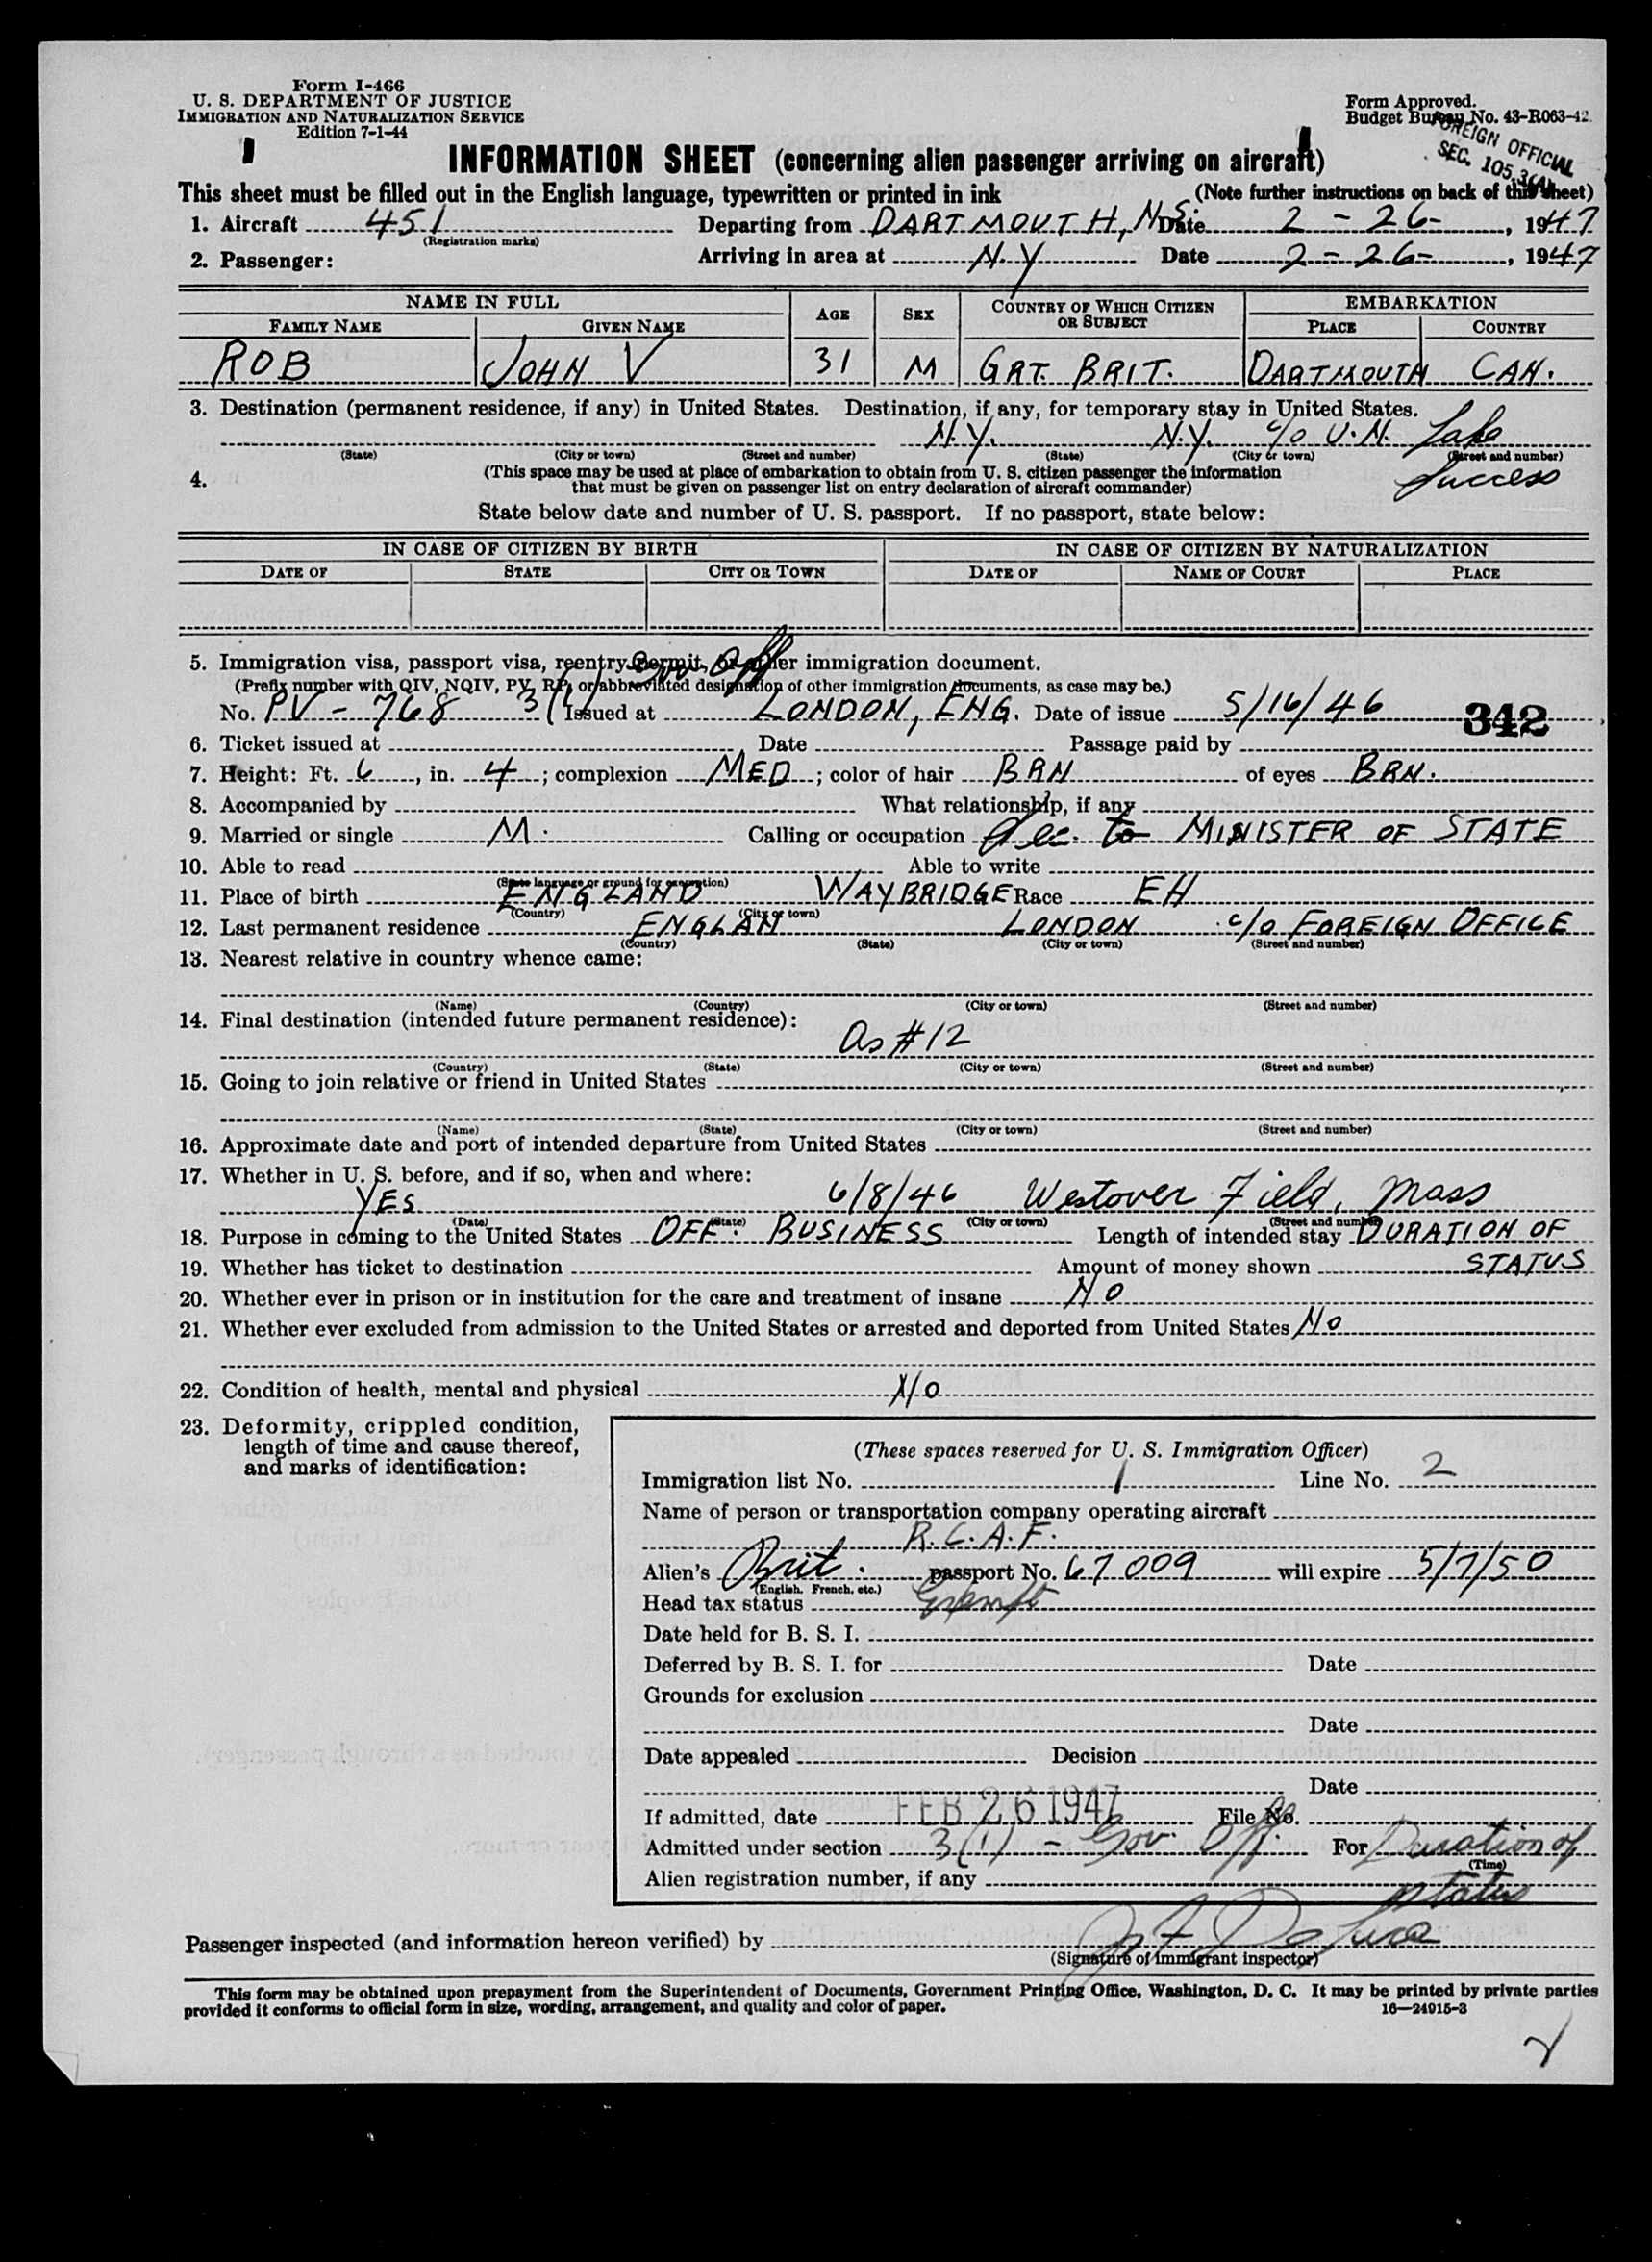 Form I-466
U. S. DEPARTMENT OF JUSTICE
IMMIGRATION AND NATURALIZATION SERVICE
Edition 7-1-44
Form Approved.
Budget Bureau No. 43-R063-42.
FOREIGN OFFICIAL
SEC. 105.3
INFORMATION SHEET (concerning alien passenger arriving on aircraft)
This sheet must be filled out in the English language, typewritten or printed in ink (Note further instructions on back of this sheet)
1. Aircraft 451 Departing from DARTMOUTH, N.S. Date 2-26-, 1947
(Registration marks)
2. Passenger: Arriving in area at N.Y Date 2-26-, 1947
NAME IN FULL AGE SEX COUNTRY OF WHICH CITIZEN OR SUBJECT EMBARKATION
FAMILY NAME GIVEN NAME PLACE COUNTRY
ROB JOHN V 31 M GRT. BRIT. DARTMOUTH CAN.
3. Destination (permanent residence, if any) in United States. Destination, if any, for temporary stay in United States.
N.Y. N.Y. c/o U.N. Lake
(State) (City or town) (Street and number) (State) (City or town) (Street and number)
Success
4. (This space may be used at place of embarkation to obtain from U. S. citizen passenger the information
that must be given on passenger list on entry declaration of aircraft commander)
State below date and number of U. S. passport. If no passport, state below:
IN CASE OF CITIZEN BY BIRTH IN CASE OF CITIZEN BY NATURALIZATION
DATE OF STATE CITY OR TOWN DATE OF NAME OF COURT PLACE
5. Immigration visa, passport visa, reentry permit, or other immigration document.
Gov. Off
(Prefix number with QIV, NQIV, PV, RP, or abbreviated designation of other immigration documents, as case may be.)
No. PV-768 3(1) Issued at LONDON, ENG. Date of issue 5/16/46 342
6. Ticket issued at Date Passage paid by
7. Height: Ft. 6, in. 4; complexion MED; color of hair BRN of eyes BRN.
8. Accompanied by What relationship, if any
9. Married or single M. Calling or occupation Sec. to MINISTER OF STATE
10. Able to read Able to write
(State language or ground for exemption)
11. Place of birth ENGLAND WAYBRIDGE Race EH
(Country) (City or town)
12. Last permanent residence ENGLAN LONDON c/o FOREIGN OFFICE
(Country) (State) (City or town) (Street and number)
13. Nearest relative in country whence came:
(Name) (Country) (City or town) (Street and number)
14. Final destination (intended future permanent residence):
As #12
(Country) (State) (City or town) (Street and number)
15. Going to join relative or friend in United States
(Name) (State) (City or town) (Street and number)
16. Approximate date and port of intended departure from United States
17. Whether in U. S. before, and if so, when and where:
YES 6/8/46 Westover Field, Mass
(Date) (State) (City or town) (Street and number)
18. Purpose in coming to the United States OFF. BUSINESS Length of intended stay DURATION OF
19. Whether has ticket to destination Amount of money shown STATUS
20. Whether ever in prison or in institution for the care and treatment of insane NO
21. Whether ever excluded from admission to the United States or arrested and deported from United States NO
22. Condition of health, mental and physical X/O
23. Deformity, crippled condition,
length of time and cause thereof,
and marks of identification:
(These spaces reserved for U. S. Immigration Officer)
Immigration list No. 1 Line No. 2
Name of person or transportation company operating aircraft
R.C.A.F.
Alien's Brit. passport No. 67009 will expire 5/7/50
(English, French, etc.)
Head tax status Exempt
Date held for B. S. I.
Deferred by B. S. I. for Date
Grounds for exclusion
Date
Date appealed Decision
Date
If admitted, date FEB 26 1947 File No.
Admitted under section 3(1) - Gov. Off. For Duration of
(Time)
Alien registration number, if any status
Passenger inspected (and information hereon verified) by
(Signature of immigrant inspector)
This form may be obtained upon prepayment from the Superintendent of Documents, Government Printing Office, Washington, D. C. It may be printed by private parties
provided it conforms to official form in size, wording, arrangement, and quality and color of paper. 16—24015-3